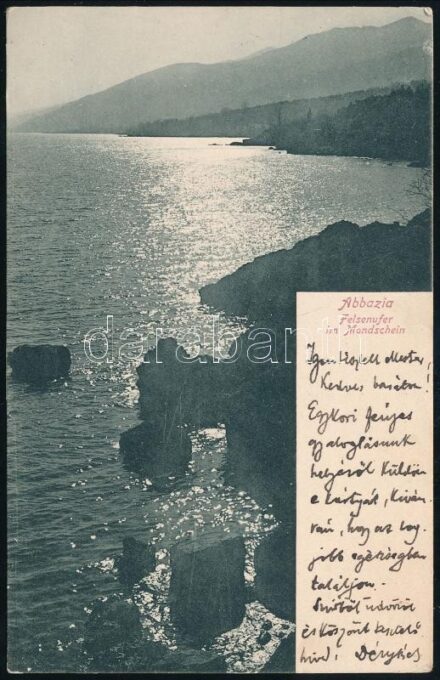 Abbazia
Felsenufer
im Mondschein
darabanth
Igen tisztelt Mester,
Kedves barátom!
Egykori fényes
gyaloglásunk
helyéről küldöm
e kártyát, kíván-
ván, hogy az leg-
jobb egészségben
találjon.
üdvözöl
és köszönt
híved: